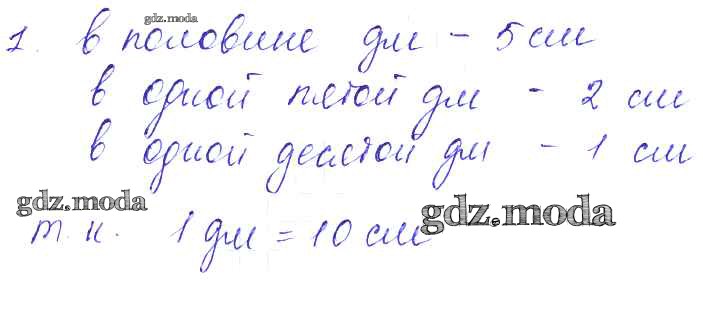 gdz.moda
1. в половине дм - 5 см
в одной пятой дм - 2 см
в одной десятой дм - 1 см
gdz.moda
gdz.moda
т.к. 1 дм = 10 см